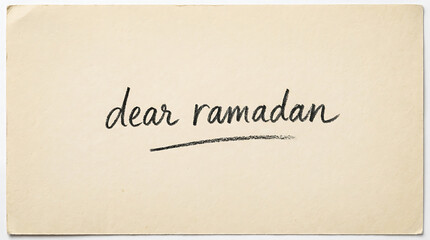 dear ramadan